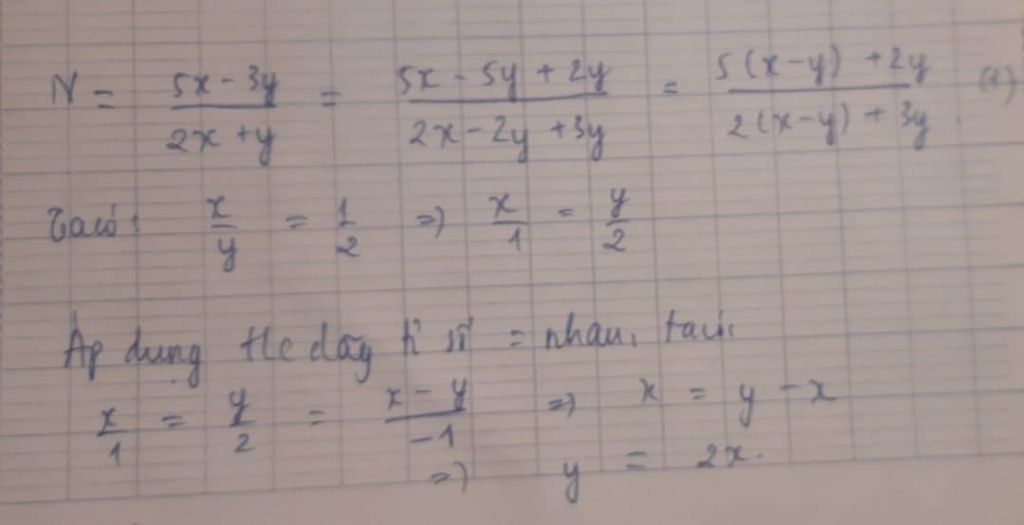 N = \frac{5x - 3y}{2x + y} = \frac{5x - 5y + 2y}{2x - 2y + 3y} = \frac{5(x-y) + 2y}{2(x-y) + 3y} (1)
Ta có: \frac{x}{y} = \frac{1}{2} => \frac{x}{1} = \frac{y}{2}
Áp dụng t/c dãy tỉ số = nhau, ta có:
\frac{x}{1} = \frac{y}{2} = \frac{x - y}{-1} => x = y - x
=> y = 2x.